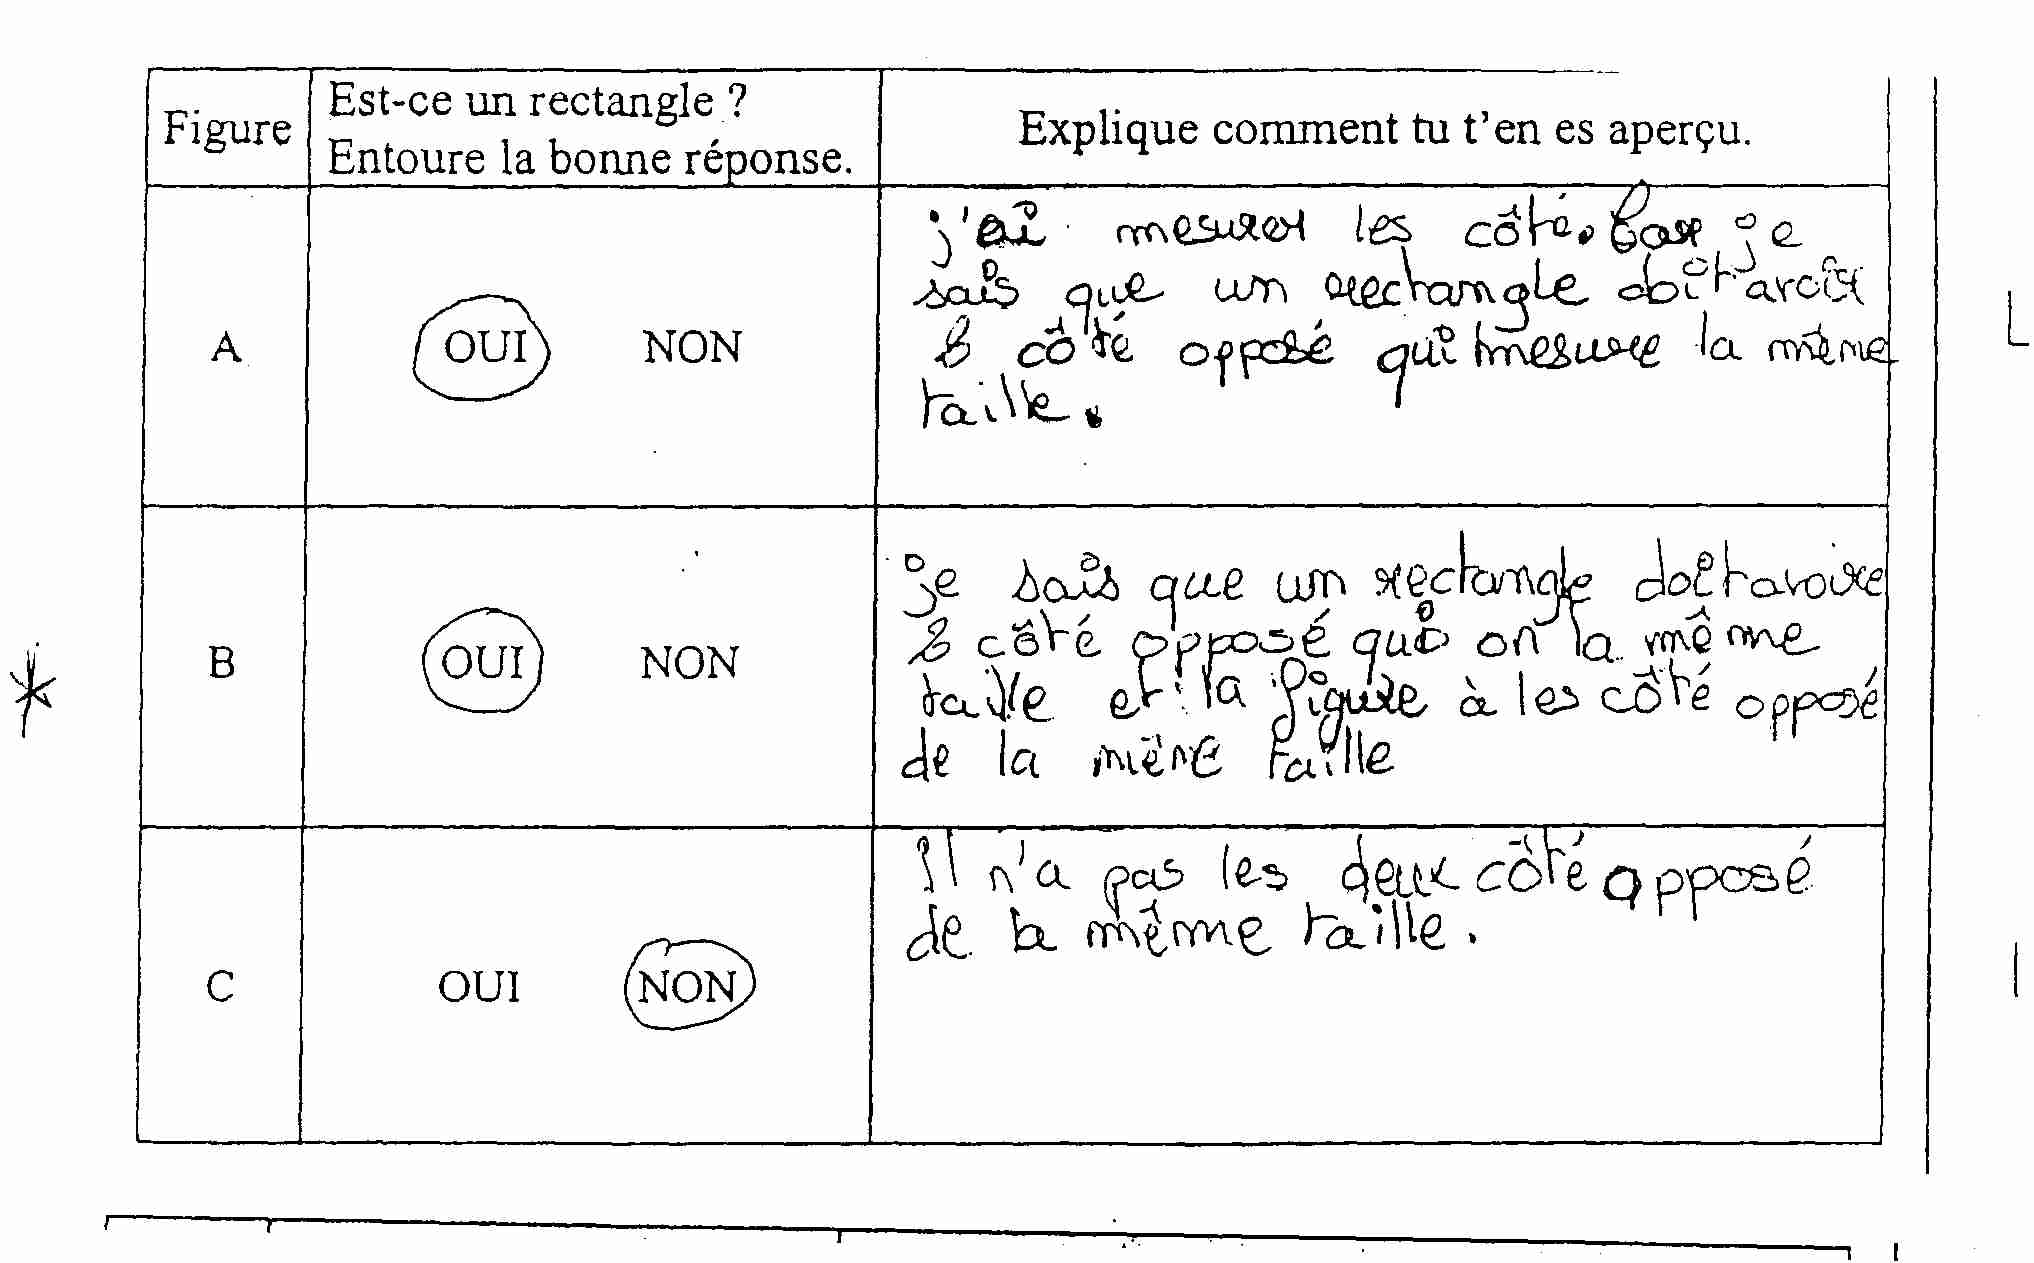 Figure
Est-ce un rectangle ?
Entoure la bonne réponse.
Explique comment tu t'en es aperçu.
A
OUI NON
j'ai mesurer les côté. Car je
sais que un rectangle doit avoir
2 côté opposé qui mesure la même
taille.
B
OUI NON
je sais que un rectangle doit avoire
2 côté opposé qui on la même
taille et la figure à les côté opposé
de la même taille
C
OUI NON
Il n'a pas les deux côté opposé
de la même taille.